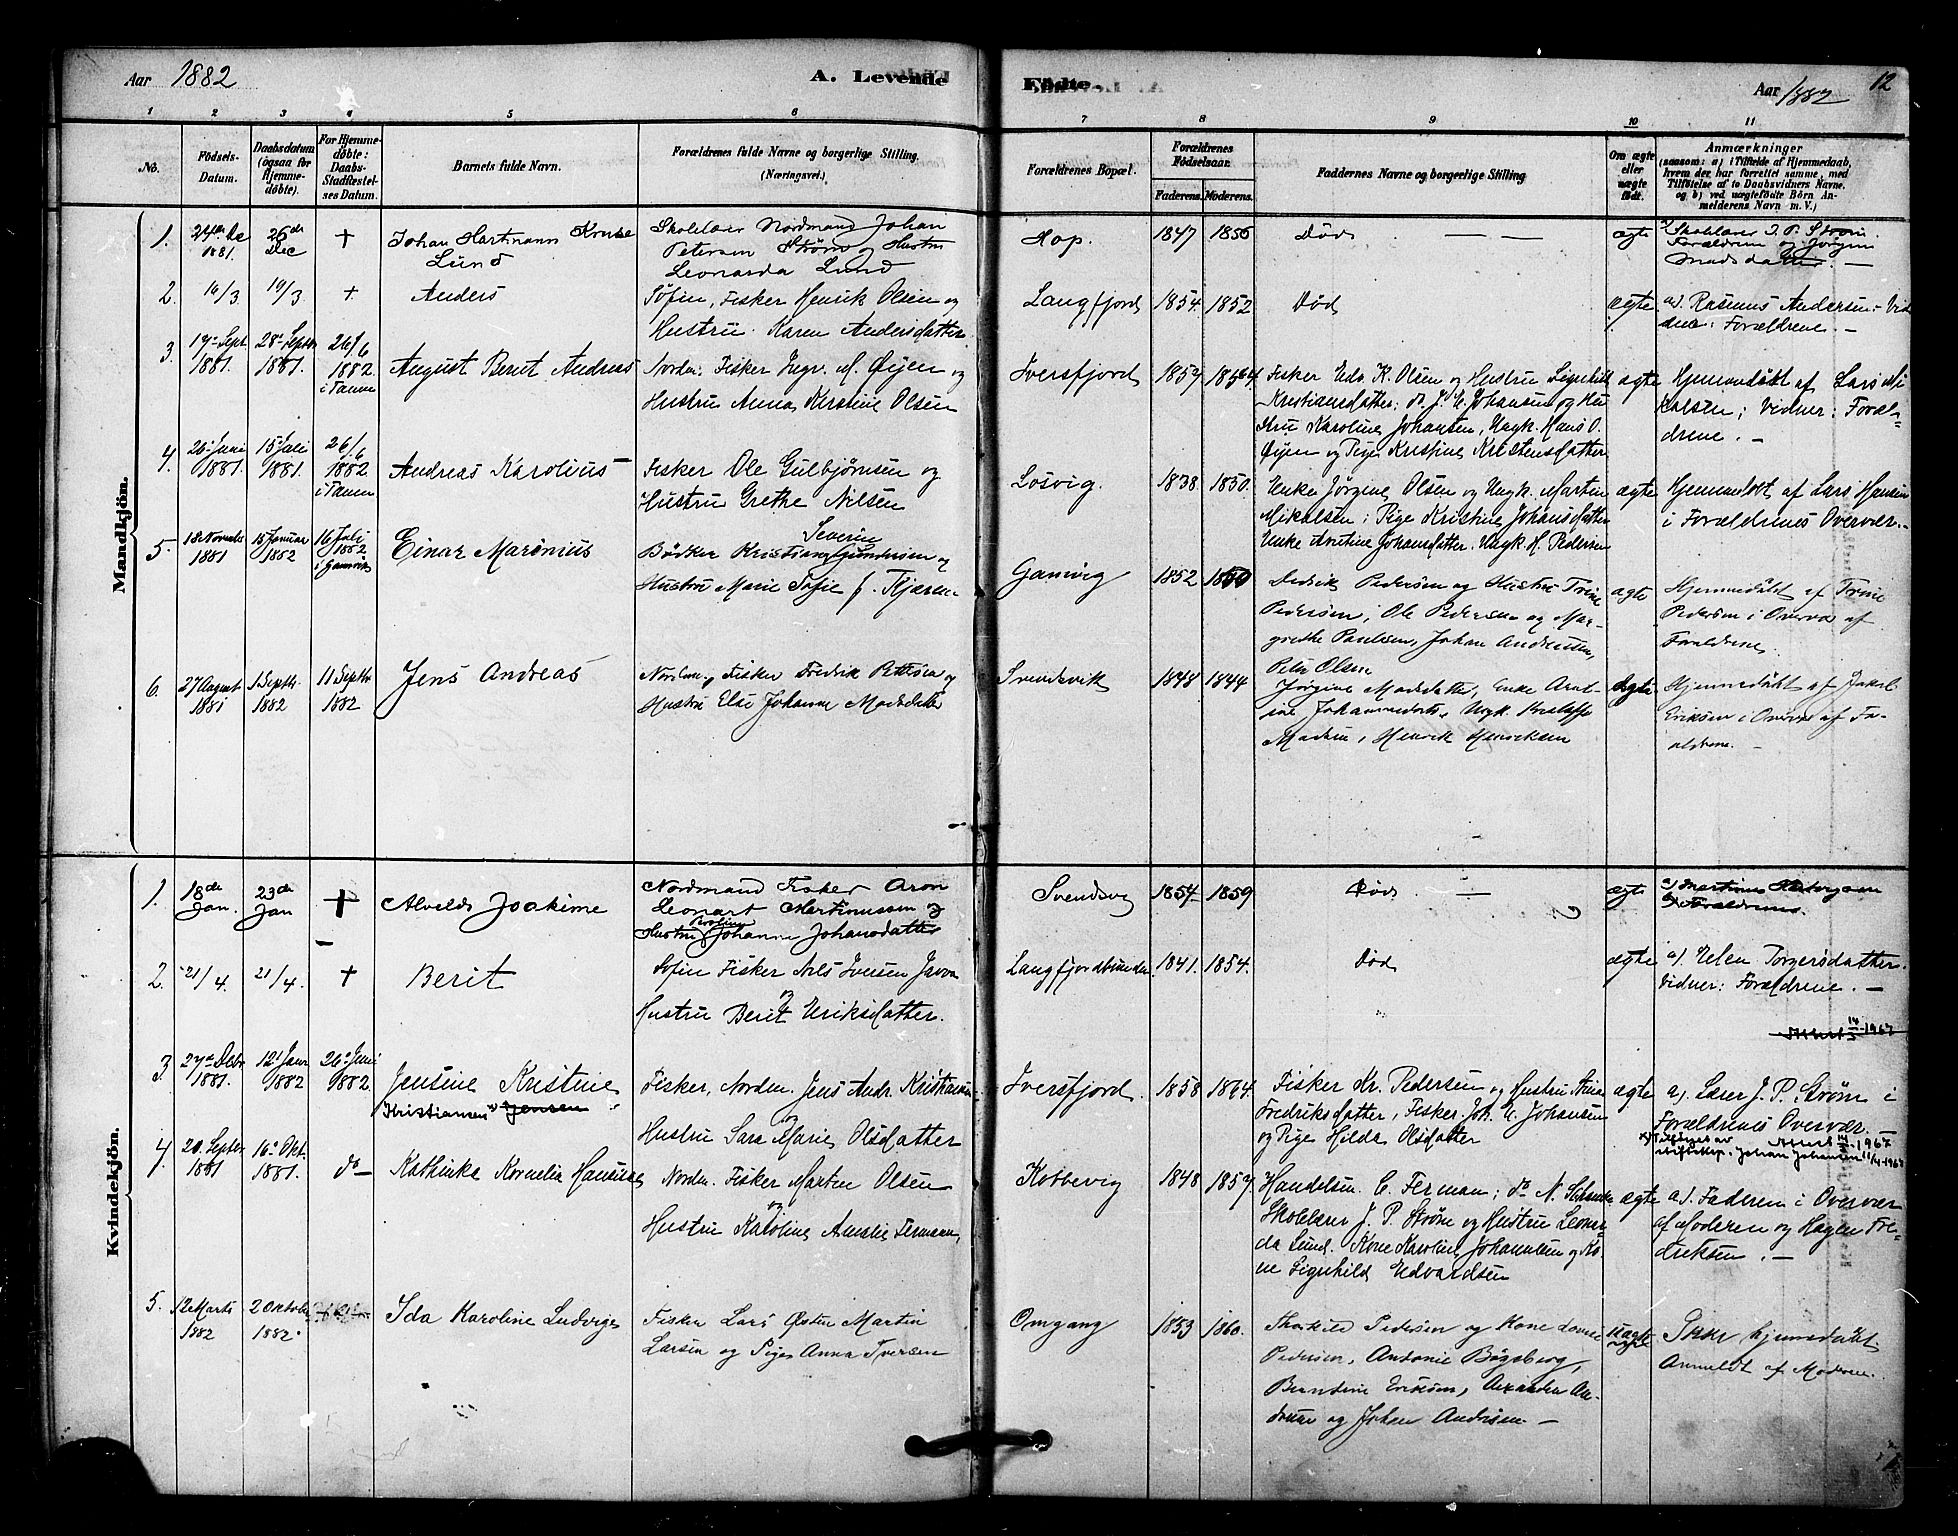 Aar 1882
A. Levende
Fødte.
Aar 1882
12
1 2 3 4 5 6 7 8 9 10 11
No.
Födsels-
Datum.
Daabsdatum
(ogsaa for
Hjemme-
døbte).
For Hjemme-
døbte:
Daabs-
Stadfæstel-
ses Datum.
Barnets fulde Navn.
Forældrenes fulde Navne og borgerlige Stilling.
(Næringsvei.)
Forældrenes Bopæl.
Forældrenes
Fødselsaar.
Faderens. Moderens.
Faddernes Navne og borgerlige Stilling
Om ægte
eller
uægte
født.
Anmærkninger
(saasom: a) i Tilfælde af Hjemmedaab,
hvem der har forrettet samme, med
Tilføielse af to Daabsvidners Navne.
og b) ved uægtefødte Børn An-
melderens Navn m. V.)
Mandkjön.
1. 24de De 1881. 26de Dec + Johan Hartmann Kruse
Lund
Skolelærer Nordmand Johan
Petersen Strøm og Hustru
Leonarda Lund
Hop. 1847 1856 Død — — ægte
Skolelærer J. P. Strøm.
Forældrene og Jørgen
Madsdatter. —
2. 16/3 19/3 + Anders
Søfin, Fisker Henrik Olsen og
Hustru Karen Andersdatter.
Langfjord 1854. 1852 Død ægte
a). Rasmus Andersen. Vid
ner: Forældrene. —
3. 19de Sept. 1881. 28de Septbr 1881. 26/6 1882 i Tanen
August Berut Andreas
Norden. Fisker Ingr. M. Øijen og
Hustru Anna Kirstine Olsen
Iversfjord 1857 1864.
Fisker Edv. K. Olsen og Hustru Signhild
Kristiansdatter; do J. E. Johansen og Hu
stru Karoline Johansen, Ungk. Hans O.
Øijen og Pige Kristine Kristensdatter.
ægte
Hjemmedøbt af Lars Mi
kalsen; Vidner: Foræl-
drene. —
4. 26de Juni 1881. 15de Juli 1881. 26/6 1882 i Tanen
Andreas Karolius —
Fisker Ole Gulbjørnsen og
Hustru Grethe Nilsen
Losvig. 1838. 1850.
Enke Jørgine Olsen og Ungk. Marten
Mikalsen; Pige Kristine Johansdatter
Enke Arntine Johansdatter. Ungk. H. Pedersen
ægte
Hjemmedøbt af Lars Hansen
i Forældrenes Overvær. —
5. 18 Novembr 1881 15 Januar 1882 16 Juli 1882 i Gamvik
Einar Marinius
Severin
Bødker Kristian Gundersen og
Hustru Marie Sofie f. Kjæren
Gamvig 1852 1850
Dedrik Pedersen og Hustru Trine
Pedersen, Ole Pedersen og Mar-
grethe Paulsen, Johan Andersen,
Peter Olsen
ægte
Hjemmedøbt af Trine
Pedersen i Overvær af
Forældrene.
6. 27 August 1881 1 Septbr. 1882 11 Septbr 1882
Jens Andreas
Nordm. Fisker Fredrik Pettersen og
Hustru Else Johanne Madsdatter
Svendsvik 1848 1844
Jørgine Madsdatter, Enke Arnt-
ine Johannesdatter, Ungk.
Madsen, Henrik Henriksen
ægte
Hjemmedøbt af Jakob
Eriksen i Overvær af Fo-
rældrene. —
Kvindekjön.
1. 18de Jan. 23de Jan +
Alvilde Joakime
Nordmand Fisker Aron
Leonart Martinussen og
Hustru Johanna Johansdatter
Svendsvig 1854 1859 Død. — ægte
Forældrene.
2. 21/4. 21/4. + Berit
Søfin Fisker Nils Iversen Javva
og
Hustru Berit Eriksdatter.
Langfjordbunden. 1841. 1854. Død ægte
a). Elen Torgersdatter.
Vidner: Forældrene. —
3. 27de Decbr 1881. 12te Janr 1882 26de Juni 1882.
Jensine Kristine
"Kristiansen" Jensen
Fisker, Norden. Jens Andr. Kristiansen
og
Hustru Sara Marie Olsdatter
Iversfjord. 1858 1864.
Fisker Kr. Pedersen og Hustru Stina
Fredriksdatter, Fisker Joh. E. Johansen
og Pige Hilda Olsdatter
ægte
a). Lærer J. P. Strøm i
Forældrenes Overvær. —
4. 20. Septbr 1881 16de Okt. 1881. do —
Kathinka Kornelia Hansine
Norden. Fisker Martin Olsen
og
Hustru Karoline Amalie Ferman,
Kobbevig 1848 1857
Handelsm. C. Ferman; do N. Schanke
Skolelærer J. P. Strøm og Hustru Leonar-
da Lund. Kone Karoline Johannesen og Ko
ne Signhild Edvardsen
ægte
a). Faderen i Overvær
af Moderen og Hagen Fre-
driksen. —
5. 12 Marts 1882 2 Oktober 1882.
Ida Karoline Ludvige
Fisker Lars Østen Martin
Larsen og Pige Anna Iversen
Omgang 1853 1860.
Thorkild Pedersen og Kone Lovise
Pedersen, Antonie Bøgeberg,
Berntine Eriksen, Alexander An-
dersen og Johan Andersen —
uægte
Ikke hjemmedøbt
Anmeldt af Moderen.